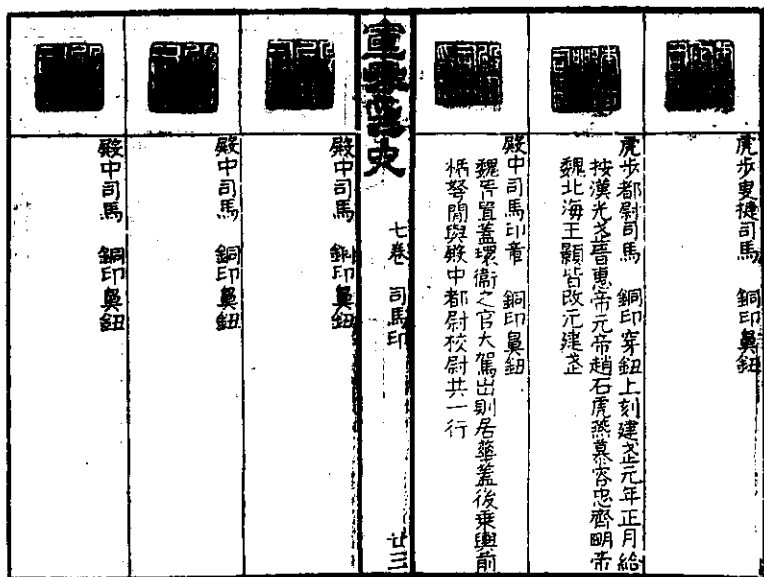 虎步叟搥司馬　銅印鼻鈕
虎步都尉司馬　銅印穿鈕上刻建武元年正月給
按漢光武晉惠帝元帝趙石虎燕慕容忠齊明帝
魏北海王顥皆改元建武
殿中司馬印章　銅印鼻鈕
魏晉置蓋環衞之官大駕出則居華蓋後乗輿前
柄弩閒與殿中都尉校尉共一行
七卷　司馬印
廿三
殿中司馬　銅印鼻鈕
殿中司馬　銅印鼻鈕
殿中司馬　銅印鼻鈕